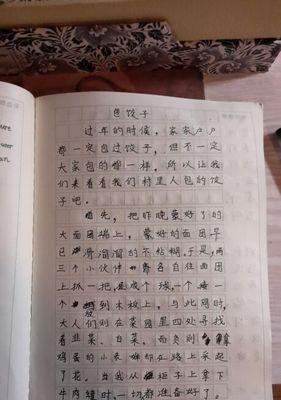 包饺子
过年的时候，家家户户
都一定包过饺子，但不一定
大家包的都一样，所以让我
们来看看我们村里人包的饺
子吧。
首先，把昨晚蒙好了的
大面团端上，蒙好的面团早
已滑溜溜的不粘糊，于是，两
三个小伙伴各自往面团
上抓一把，一个
个放到木板上，与此同时，
大人们则在菜园里四处寻找
着韭菜、白菜，而负责
鸡蛋的小表妹却在路上采起
了花。当我从柜子上拿下
牛肉罐时，一切都准备好了。